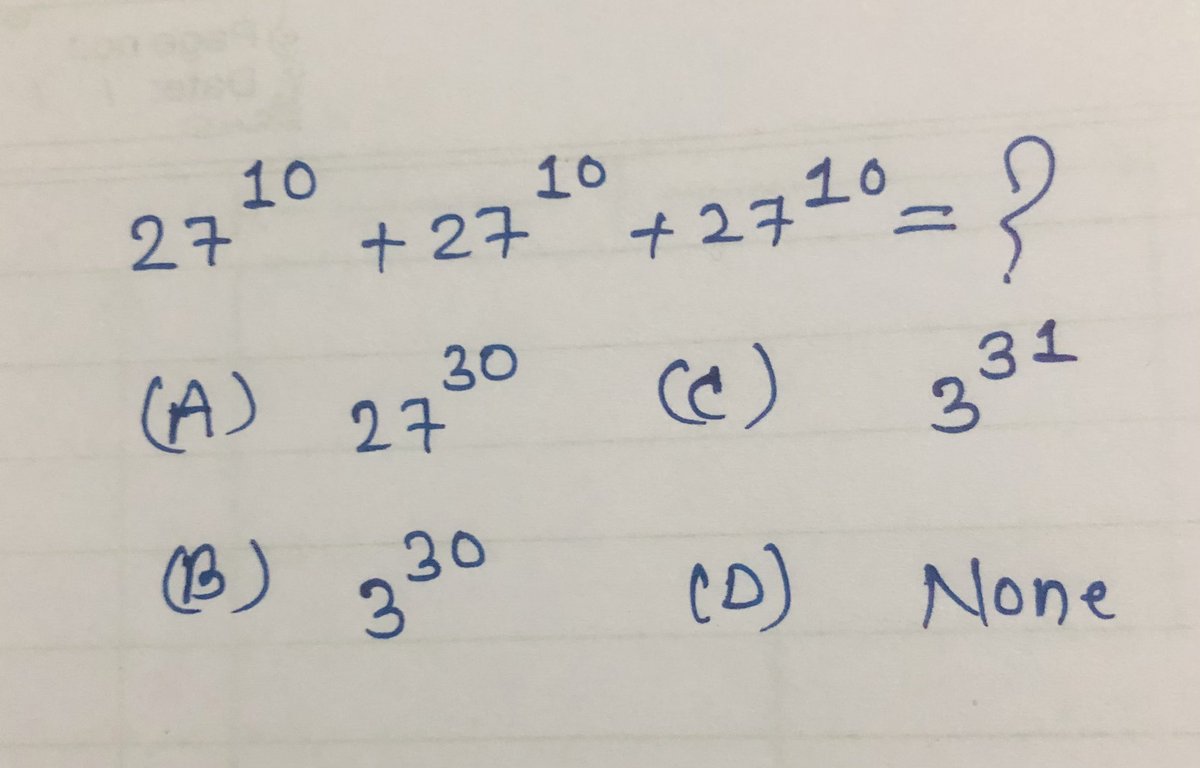 27¹⁰ + 27¹⁰ + 27¹⁰ = ?
(A) 27³⁰ (C) 3³¹
(B) 3³⁰ (D) None